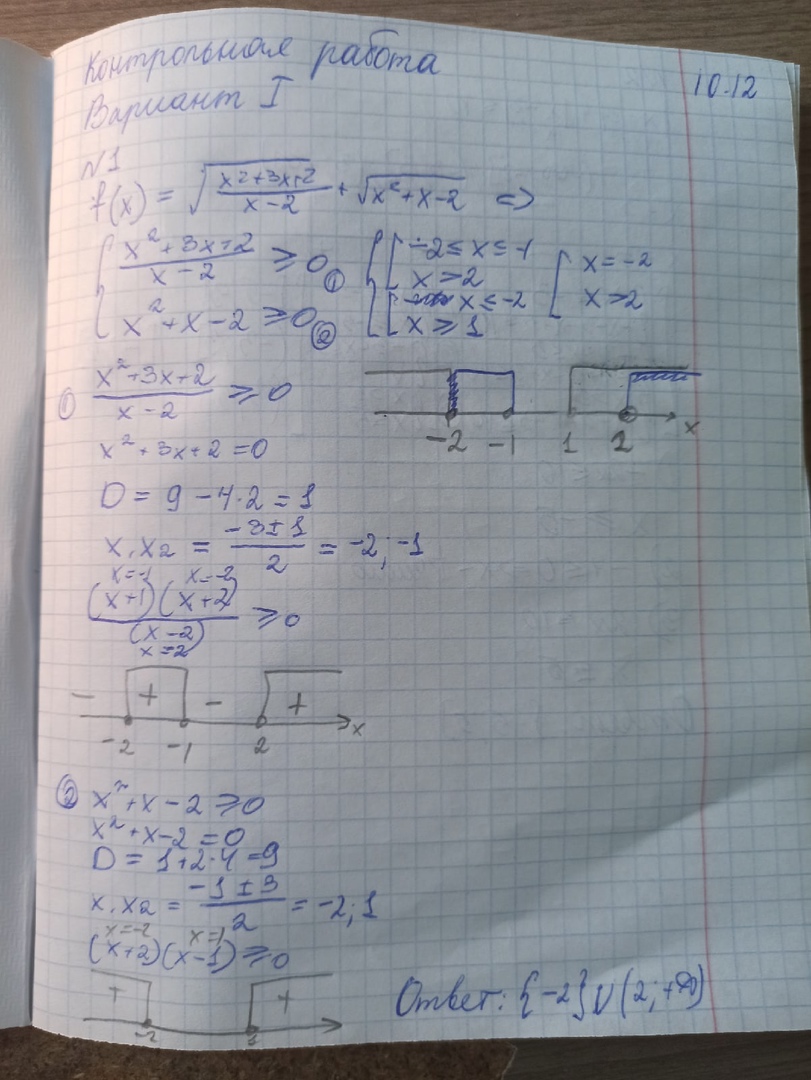 Контрольная работа
10.12
Вариант I
N1
f(x) = √((x²+3x+2)/(x-2)) + √(x²+x-2) <=>
{ (x²+3x+2)/(x-2) ≥ 0 ① { [ -2 ≤ x ≤ -1 [ x = -2
x > 2 x > 2
x²+x-2 ≥ 0 ② [ x ≤ -2
x ≥ 1
① (x²+3x+2)/(x-2) ≥ 0
-2 -1 1 2 x
x²+3x+2=0
D = 9 - 4·2 = 1
x, x2 = (-3±1)/2 = -2; -1
x=-1 x=-2
(x+1)(x+2)/(x-2) ≥ 0
x=2
- + - +
-2 -1 2 x
② x²+x-2 ≥ 0
x²+x-2=0
D = 1+2·4=9
x, x2 = (-1±3)/2 = -2; 1
x=-2 x=1
(x+2)(x-1) ≥ 0
+ +
-2
Ответ: {-2}U(2;+∞)